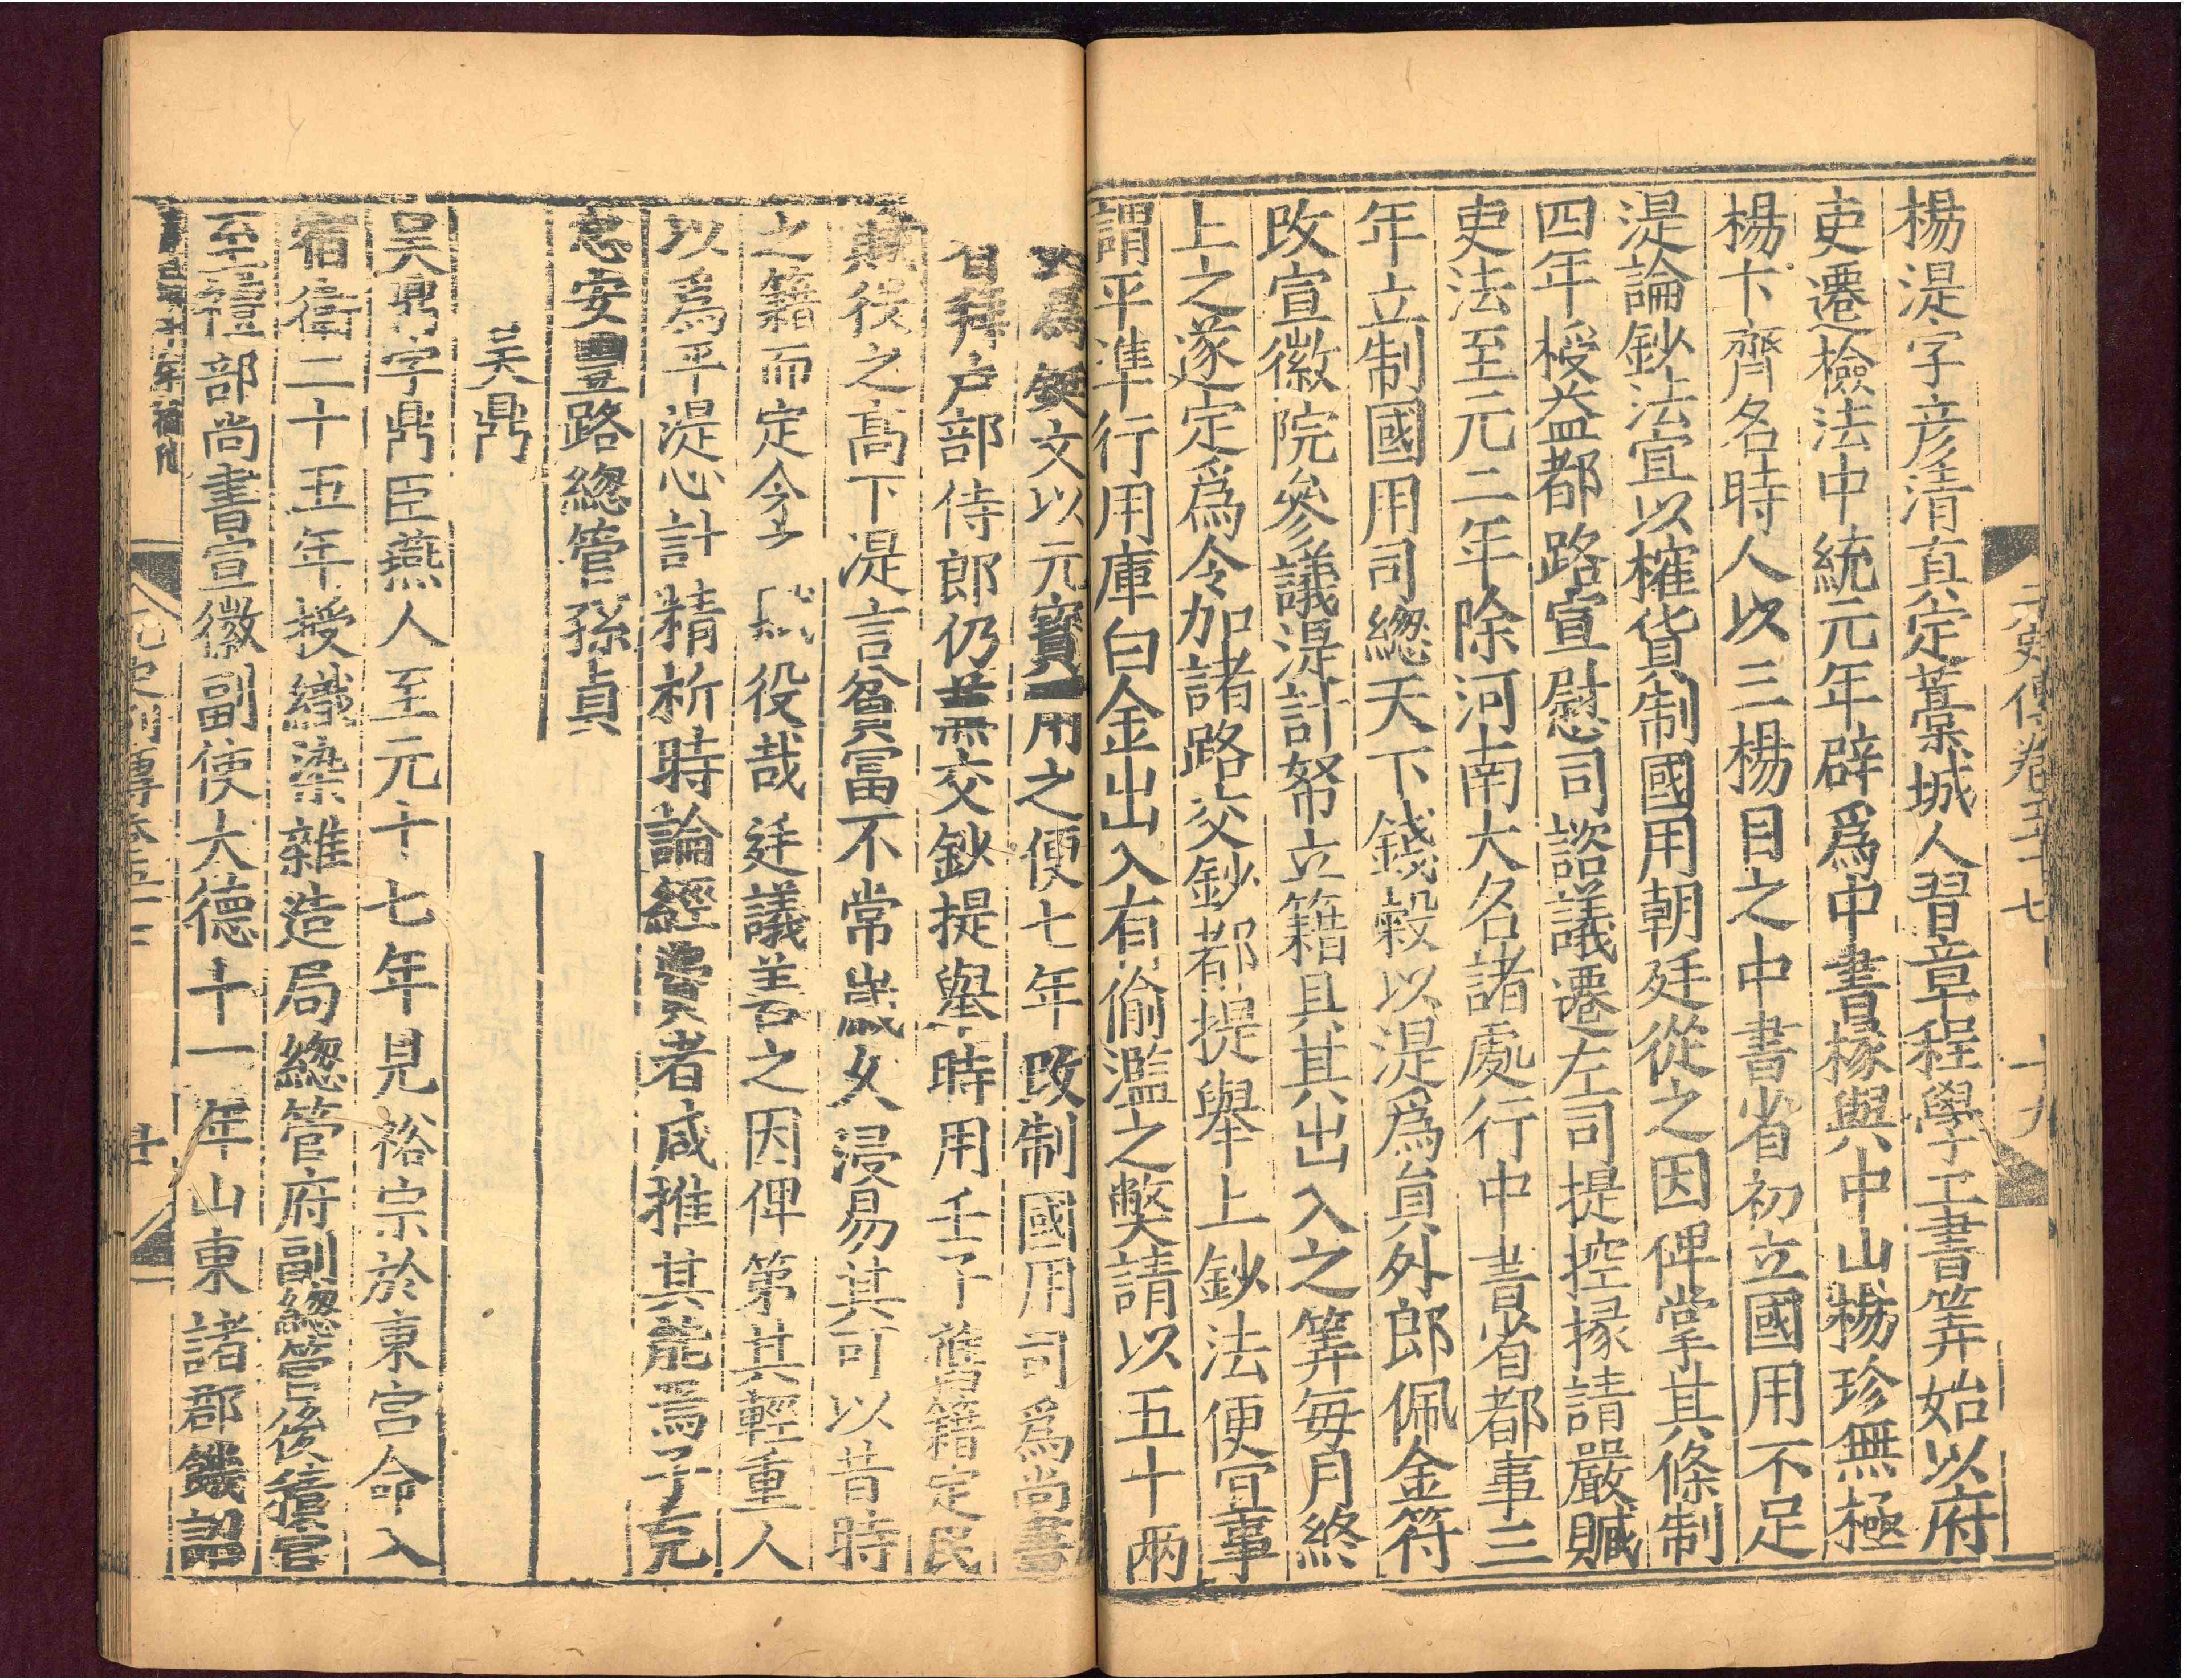 元史傳卷五十七 十九
楊湜字彦清真定藁城人習章程學工書筭始以府
吏遷檢法中統元年辟爲中書掾與中山楊珍無極
楊卞齊名時人以三楊目之中書省初立國用不足
湜論鈔法宜以榷貨制國用朝廷從之因俾掌其條制
四年授益都路宣慰司諮議遷左司提控掾請嚴贓
吏法至元二年除河南大名諸處行中書省都事三
年立制國用司緫天下錢穀以湜爲貟外郎佩金符
改宣徽院參議湜計帑立籍具其出入之筭每月終
上之遂定爲令加諸路交鈔都提舉上鈔法便宜事
謂平準行用庫白金出入有偷濫之獘請以五十兩
鑄爲錠文以元寳用之便七年改制國用司爲尚書
省拜户部侍郎仍兼交鈔提舉時用壬子舊籍定民
賦役之高下湜言貧富不常歲久浸易其可以昔時
之籍而定今之賦役哉廷議善之因俾第其輕重人
以爲平湜心計精析時論經費者咸推其能焉子克
忠安豐路緫管孫貞
吴鼎
吴鼎字鼎臣燕人至元十七年見裕宗於東宫命入
宿衛二十五年授織染雜造局緫管府副緫管後積官
至禮部尚書宣徽副使大德十一年山東諸郡饑詔
元史列傳卷五十 廿